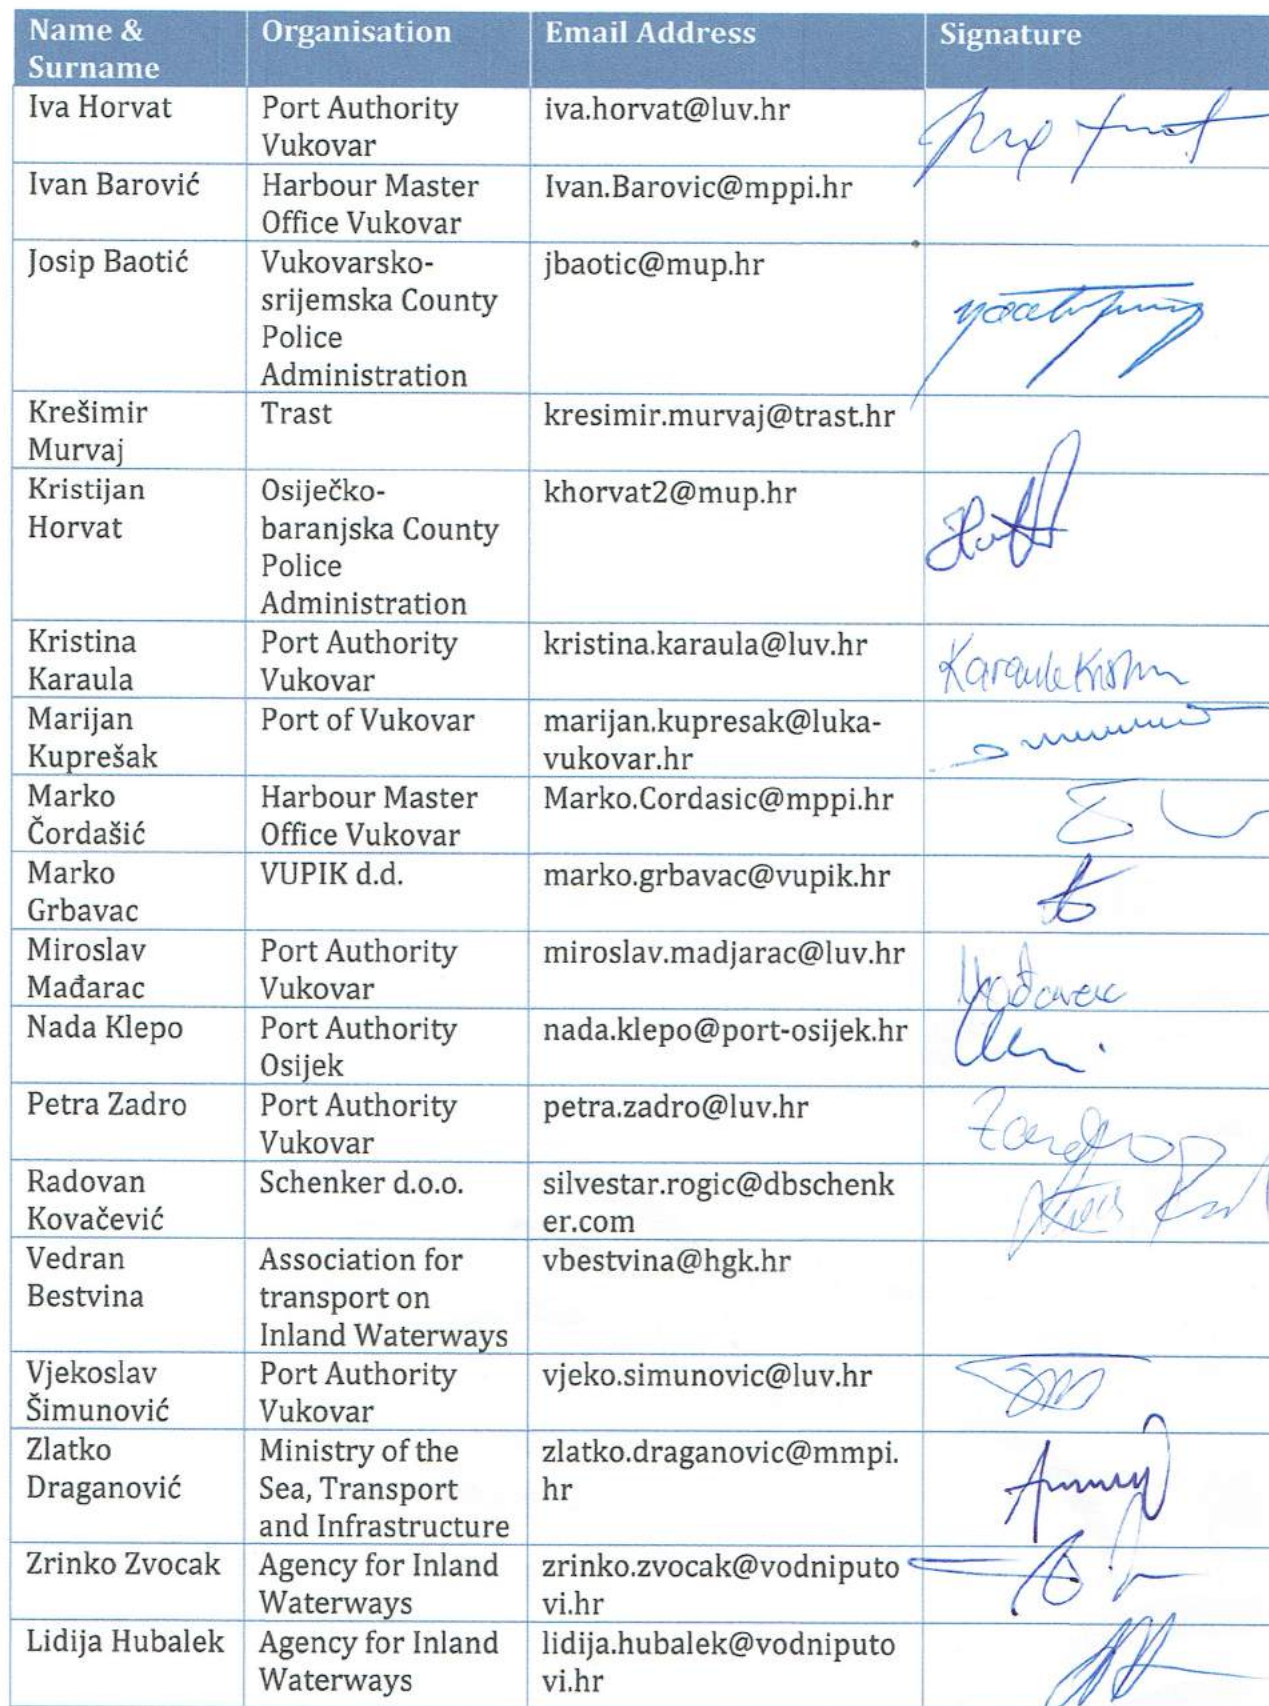 Name & Surname | Organisation | Email Address | Signature
Iva Horvat | Port Authority Vukovar | iva.horvat@luv.hr
Ivan Barović | Harbour Master Office Vukovar | Ivan.Barovic@mppi.hr
Josip Baotić | Vukovarsko-srijemska County Police Administration | jbaotic@mup.hr
Krešimir Murvaj | Trast | kresimir.murvaj@trast.hr
Kristijan Horvat | Osiječko-baranjska County Police Administration | khorvat2@mup.hr
Kristina Karaula | Port Authority Vukovar | kristina.karaula@luv.hr
Marijan Kuprešak | Port of Vukovar | marijan.kupresak@luka-vukovar.hr
Marko Čordašić | Harbour Master Office Vukovar | Marko.Cordasic@mppi.hr
Marko Grbavac | VUPIK d.d. | marko.grbavac@vupik.hr
Miroslav Mađarac | Port Authority Vukovar | miroslav.madjarac@luv.hr
Nada Klepo | Port Authority Osijek | nada.klepo@port-osijek.hr
Petra Zadro | Port Authority Vukovar | petra.zadro@luv.hr
Radovan Kovačević | Schenker d.o.o. | silvestar.rogic@dbschenker.com
Vedran Bestvina | Association for transport on Inland Waterways | vbestvina@hgk.hr
Vjekoslav Šimunović | Port Authority Vukovar | vjeko.simunovic@luv.hr
Zlatko Draganović | Ministry of the Sea, Transport and Infrastructure | zlatko.draganovic@mmpi.hr
Zrinko Zvocak | Agency for Inland Waterways | zrinko.zvocak@vodniputovi.hr
Lidija Hubalek | Agency for Inland Waterways | lidija.hubalek@vodniputovi.hr